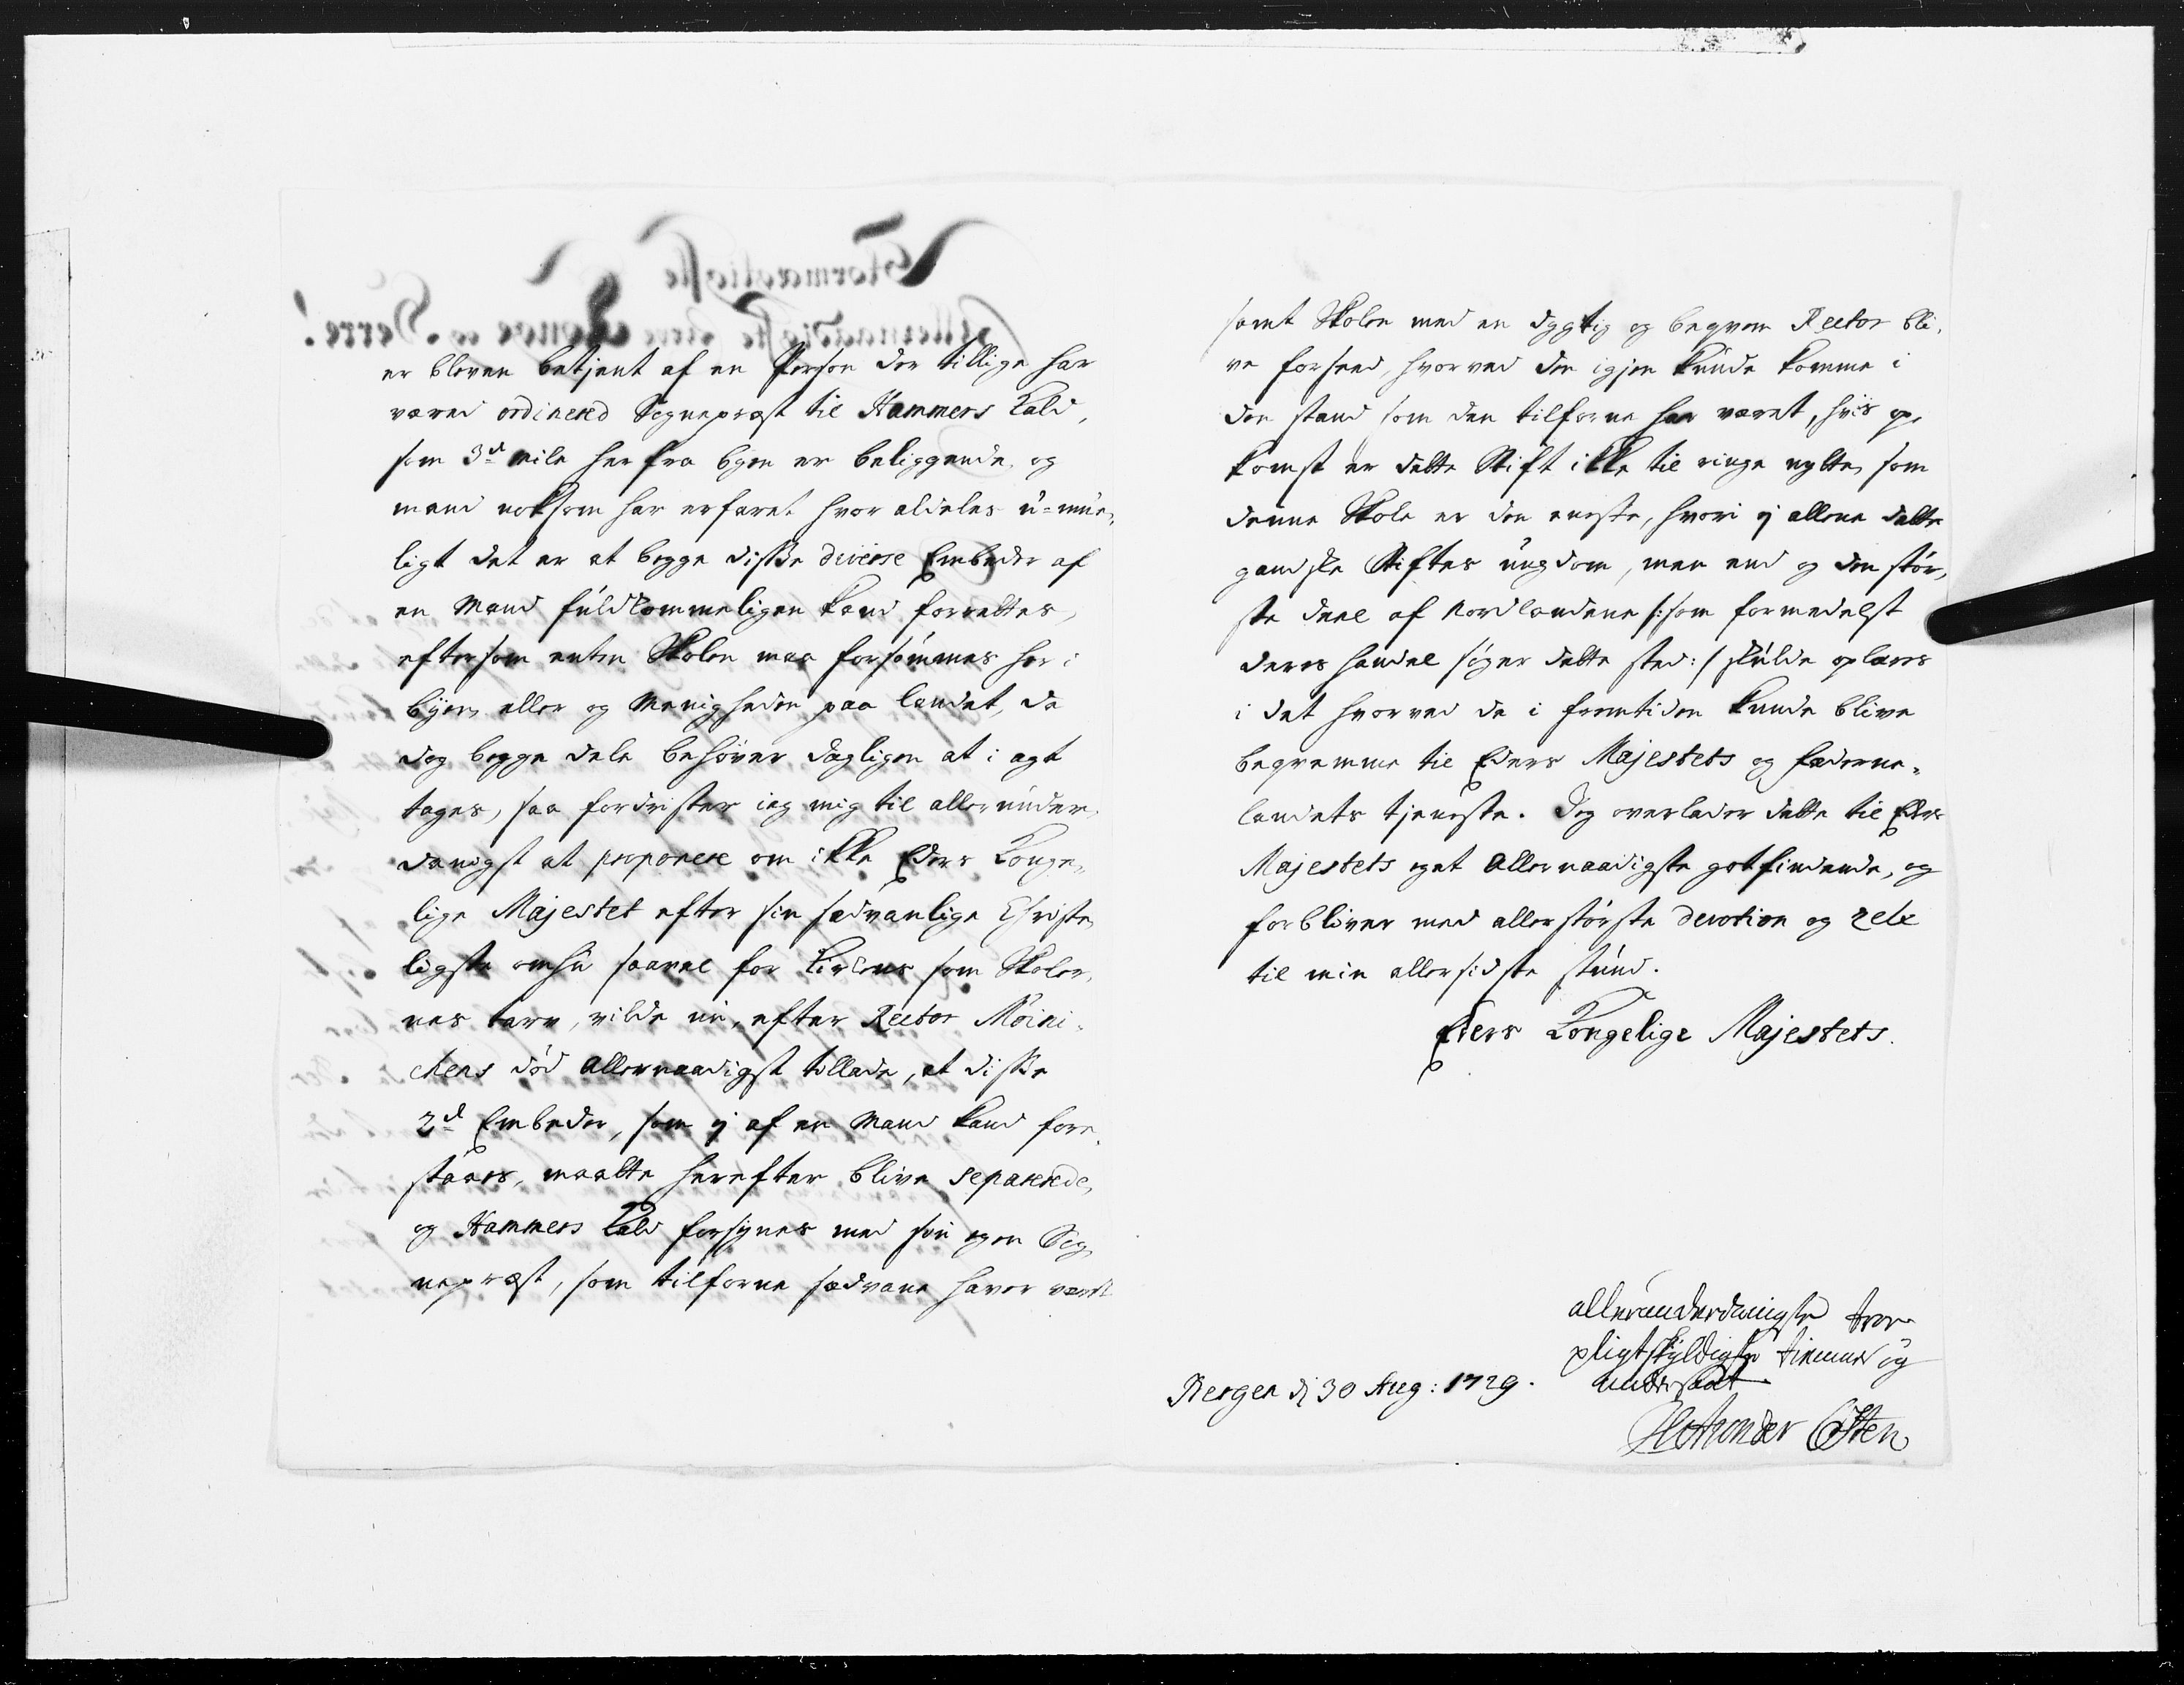 er bleven betjent af en Person der tillige har
været ordinered Sognepræst til Hammers Kald,
som 3de mile her fra Byen er beliggende, og
mand noksom har erfaret hvor aldeles u-mue-
ligt det er at begge disse diverse Embeder af
en Mand fuldkommeligen kand forrettes,
eftersom enten Skolen maa forsømmes her i
Byen, eller og Menigheden paa landet, da
dog begge dele behøver dagligen at i agt
tages, saa fordrister ieg mig til allerunder-
danigst at proponere om ikke Eders Konge-
lige Majestet efter sin sædvanlige Christe-
ligste omhu saavel for Kirkens som Skoler-
nes tarv, vilde nu, efter Rector Möini-
chens død Allernaadigst tillade, at disse
2de Embeder, som ej af en Mand kand fore-
staaes, maatte herefter blive separerede,
og Hammers Kald forsynes med sin egen Sog-
nepræst, som tilforne sædvane haver været
samt Skolen med en dygtig og beqvem Rector bli-
ve forseed, hvorved den igjen kunde komme i
den stand som den tilforne har været, hvis op-
komst er dette Stift ikke til ringe nytte, som
denne Skole er den eneste, hvori ej allene dette
gandske Stiftes ungdom, men end og den stør-
ste deel af Nordlandene /: som formedelst
deres handel søger dette sted :/ skulde oplæres
i det hvorved de i fremtiden kunde blive
beqvemme til Eders Majestets og fæderne-
landets tjeneste. Jeg overlader dette til Eders
Majestets eget Allernaadigste gotfindende, og
forbliver med allerstørste devotion og zele
til min allersidste stund.
Eders Kongelige Majestets.
allerunderdanigste troe
pligtskyldigste tienner og
undersaat
Bergen dj 30 Aug: 1729.